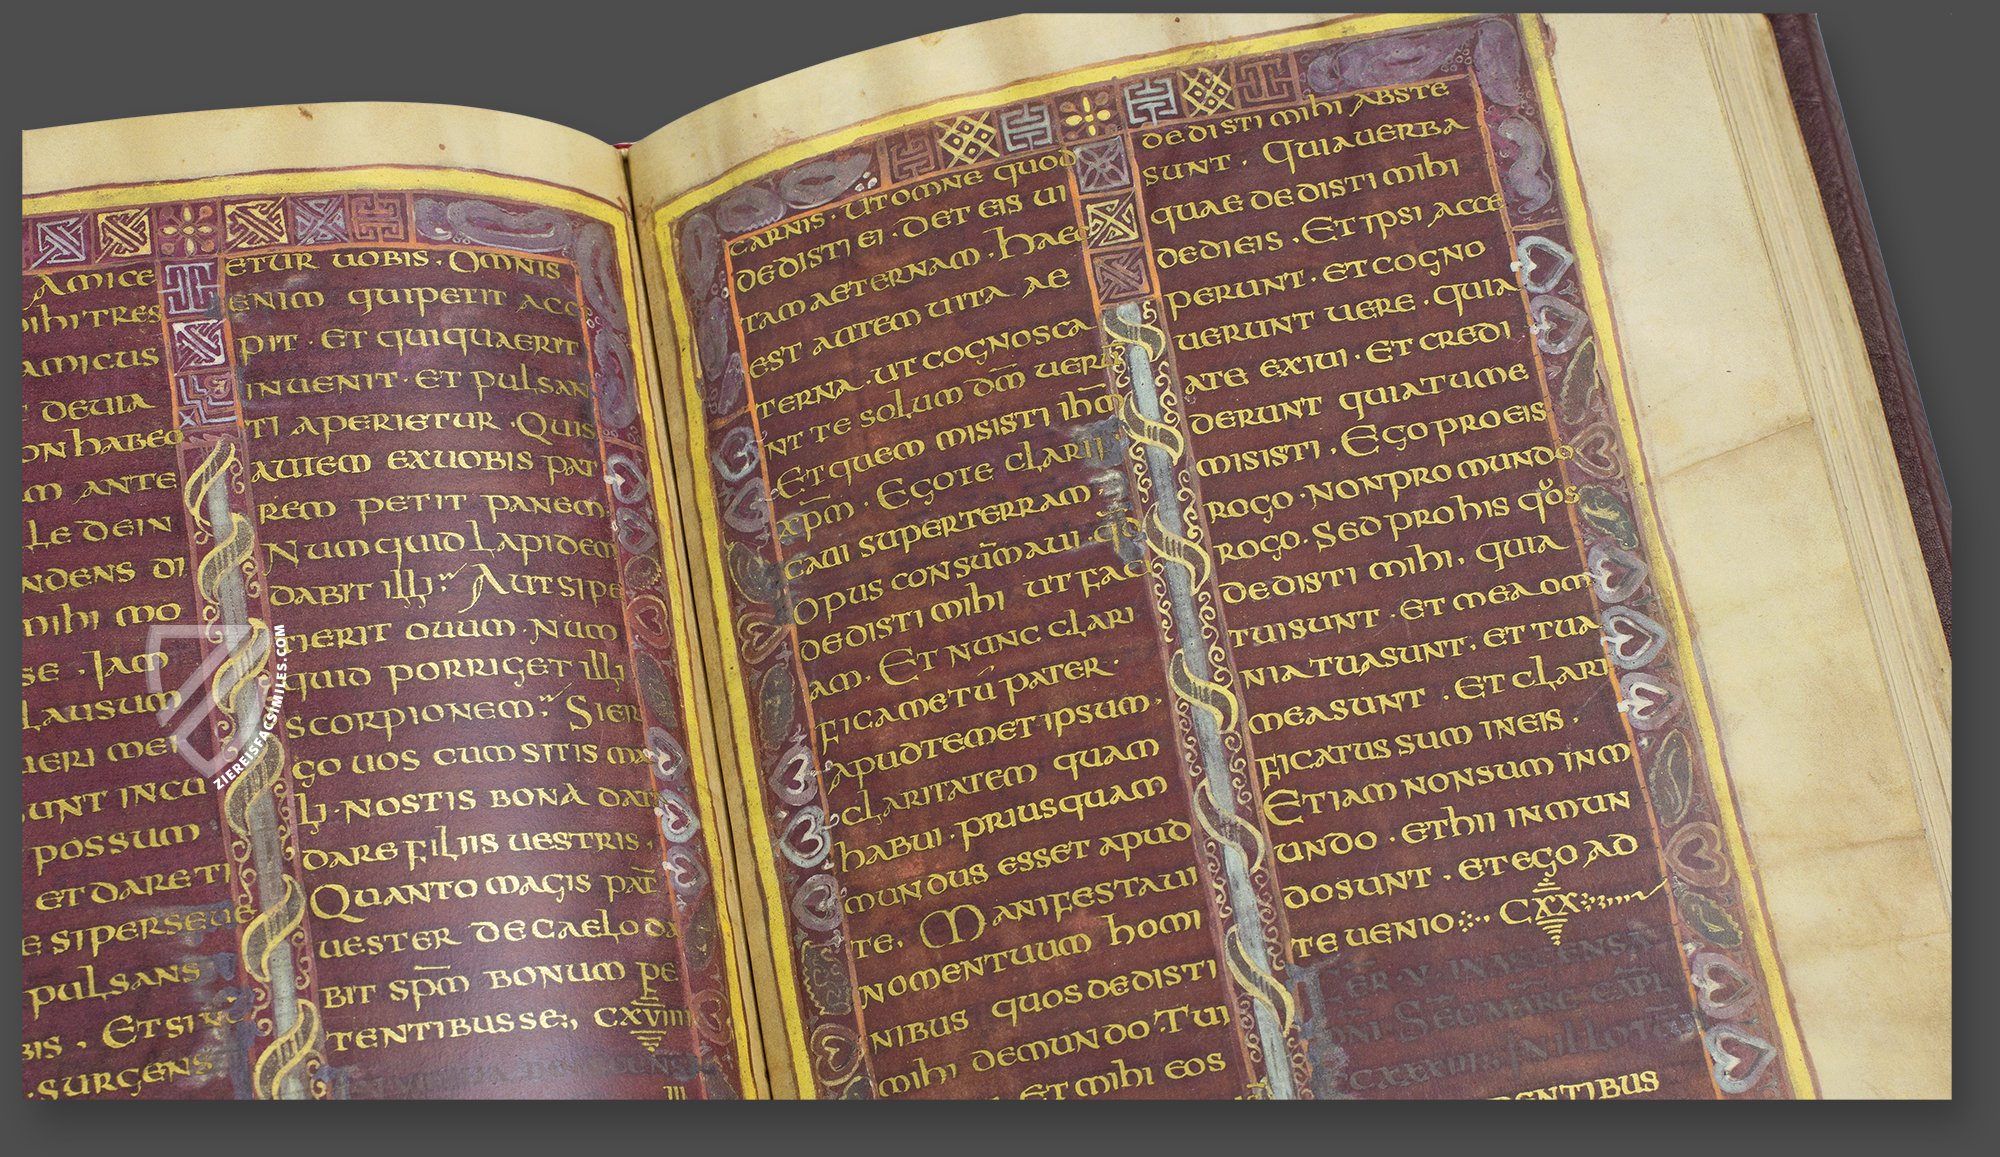 AMICE
MIHI TRES
AMICUS
DEUIA
ON HABEO
M ANTE
LLE DEIN
NDENS DI
MIHI MO
SE · IAM
LAUSUM
UERI MEI
SUNT INCU
POSSUM ·
ET DARE TI
E SI PERSEUE
PULSANS
BIS . ET SI
· SURGENS
ETUR UOBIS · OMNIS
ENIM QUI PETIT ACC
PIT · ET QUI QUAERIT
INUENIT · ET PULSAN
TI APERIETUR · QUIS
AUTEM EX UOBIS PAT
REM PETIT PANEM
NUMQUID LAPIDEM
DABIT ILLI · AUT SI PE
TIERIT OUUM · NUM
QUID PORRIGET ILLI
SCORPIONEM · SI ER
GO UOS CUM SITIS MA
LI · NOSTIS BONA DATA
DARE FILIIS UESTRIS ,
QUANTO MAGIS PAT̄
UESTER DE CAELO DA
BIT SP̄M BONUM PE
TENTIBUS SE:, CXVIIII
III
CARNIS · UT OMNE QUOD
DEDISTI EI · DET EIS UI
TAM AETERNAM · HAEC
EST AUTEM UITA AE
TERNA · UT COGNOSCA
NT TE SOLUM DM̄ UERU
ET QUEM MISISTI IHM̄
XP̄M · EGO TE CLARIFI
CAUI SUPER TERRAM ·
OPUS CONSUM̄AUI · QD̄
DEDISTI MIHI UT FAC
AM . ET NUNC CLARI
FICA ME TU PATER ·
APUD TEMET IPSUM .
CLARITATEM QUAM
HABUI · PRIUSQUAM
MUNDUS ESSET APUD
TE . MANIFESTAUI
NOMEN TUUM HOMI
NIBUS QUOS DEDISTI
MIHI DE MUNDO · TUI
ET MIHI EOS
DEDISTI MIHI ABS TE
SUNT · QUIA UERBA
QUAE DEDISTI MIHI
DEDI EIS . ET IPSI ACCE
PERUNT · ET COGNO
UERUNT UERE · QUIA
A TE EXIUI · ET CREDI
DERUNT QUIA TU ME
MISISTI . EGO PRO EIS
ROGO · NON PRO MUNDO
ROGO · SED PRO HIS QUOS
DEDISTI MIHI , QUIA
TUI SUNT · ET MEA OM
NIA TUA SUNT · ET TUA
MEA SUNT · ET CLARI
FICATUS SUM IN EIS .
ETIAM NON SUM IN M
UNDO · ET HII IN MUN
DO SUNT . ET EGO AD
TE UENIO CXX
ENTIBUS
ZIEREISFACSIMILES.COM